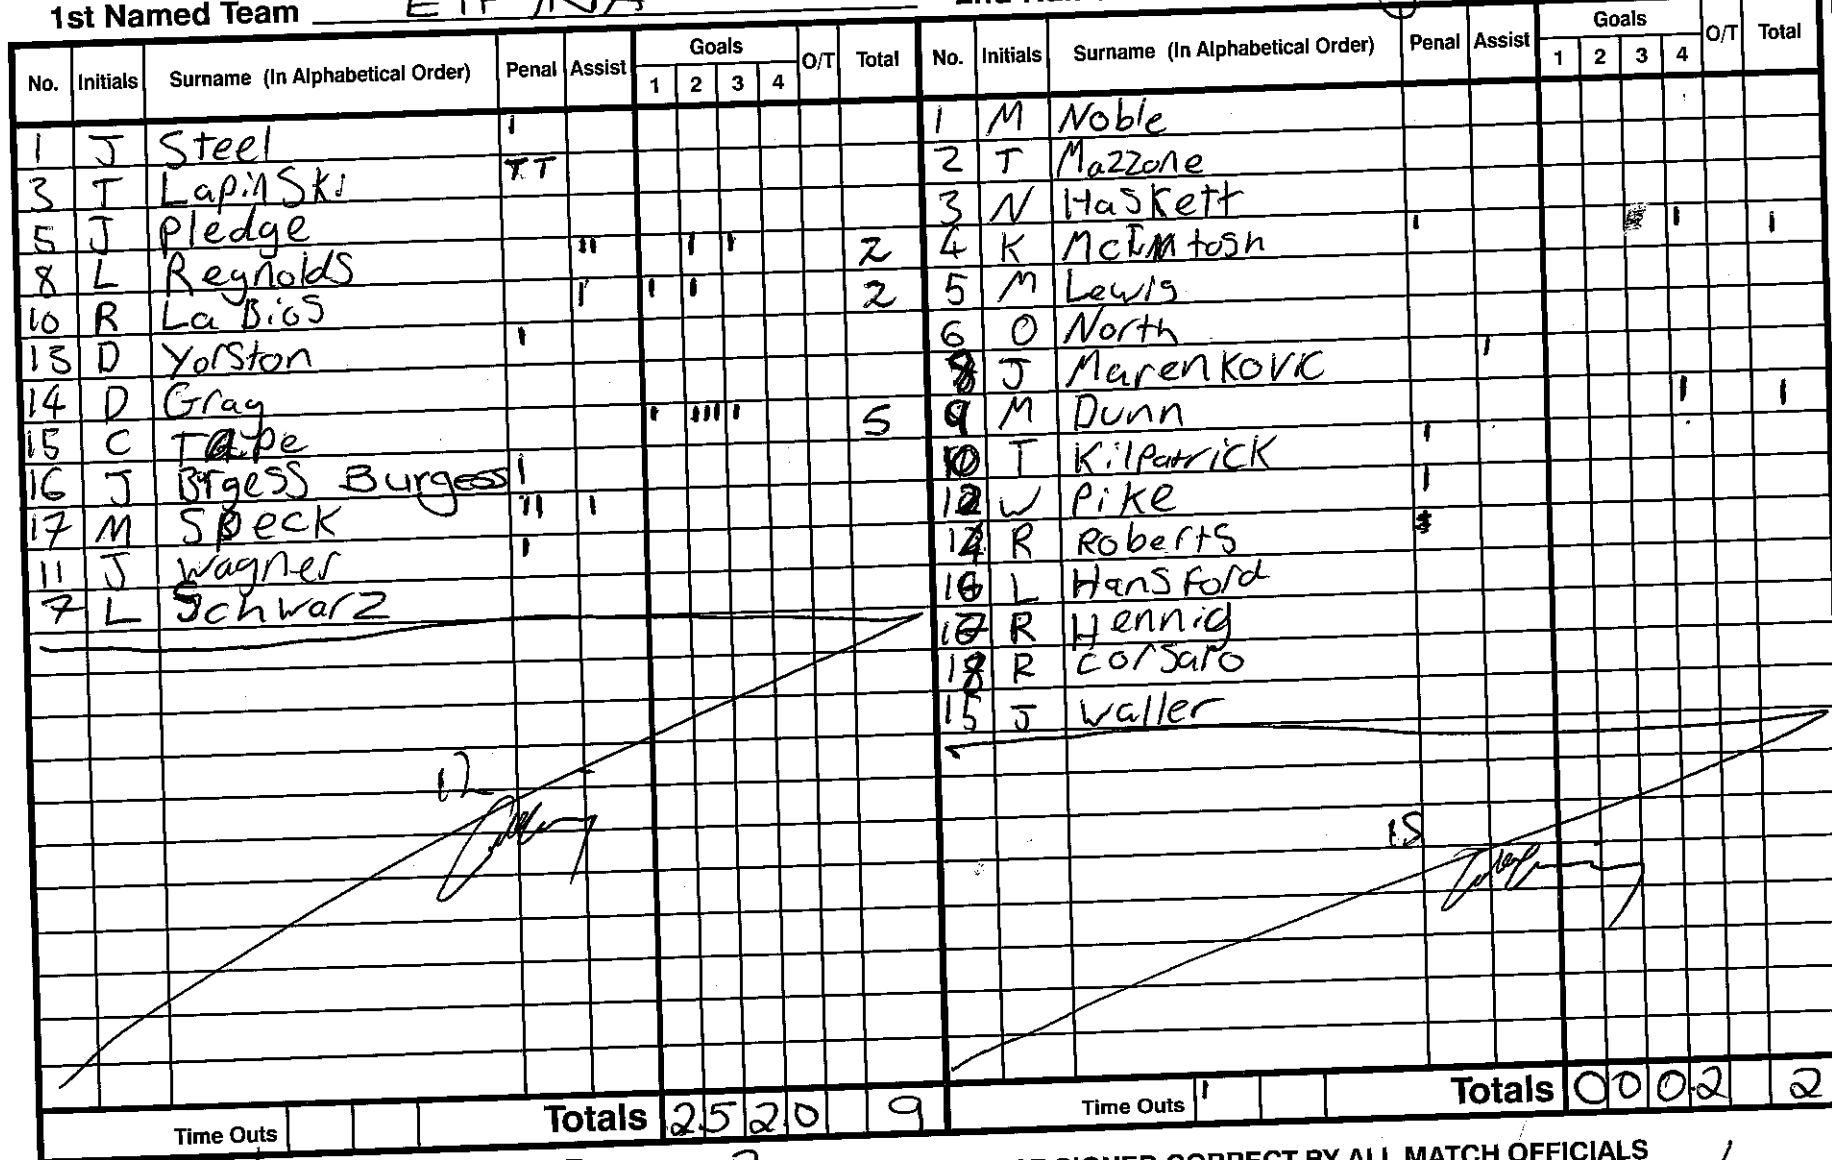 1st Named Team
No. Initials Surname (In Alphabetical Order) Penal Assist Goals 1 2 3 4 O/T Total
1 J Steel ı
3 T Lapinski TT
5 J Pledge
8 L Reynolds ıı ı ı 2
10 R La Bios ı ı ı 2
13 D Yorston ı
14 D Gray
15 C Tape ı ıııı ı 5
16 J Brgess Burgess ı
17 M Speck ıı ı
11 J Wagner ı
7 L Schwarz
12
Time Outs Totals 2 5 2 0 9
No. Initials Surname (In Alphabetical Order) Penal Assist Goals 1 2 3 4 O/T Total
1 M Noble
2 T Mazzone
3 N Haskett
4 K McIntosh ı ı ı
5 M Lewis
6 O North
8 J Marenkovic ı
9 M Dunn ı ı
10 T Kilpatrick ı
12 W Pike ı
14 R Roberts
16 L Hansford
17 R Hennig
18 R Corsaro
15 J Waller
15
Time Outs ı Totals 0 0 0 2 2
SIGNED CORRECT BY ALL MATCH OFFICIALS